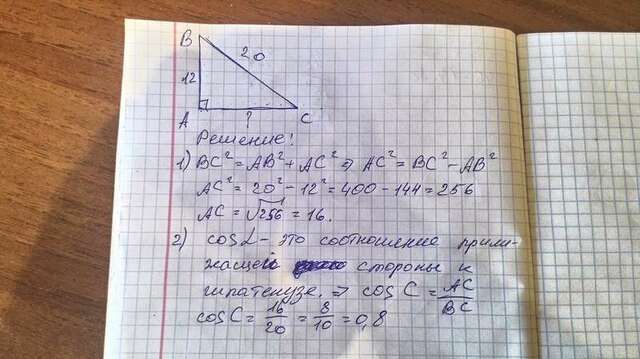 B
20
12
A
?
C
Решение!
1) BC² = AB² + AC² ⇒ AC² = BC² – AB²
AC² = 20² – 12² = 400 – 144 = 256
AC = √256 = 16.
2) cos L – это соотношение прили-
жащей стороны к
гипатенузе. ⇒ cos C = AC/BC
cos C = 16/20 = 8/10 = 0,8